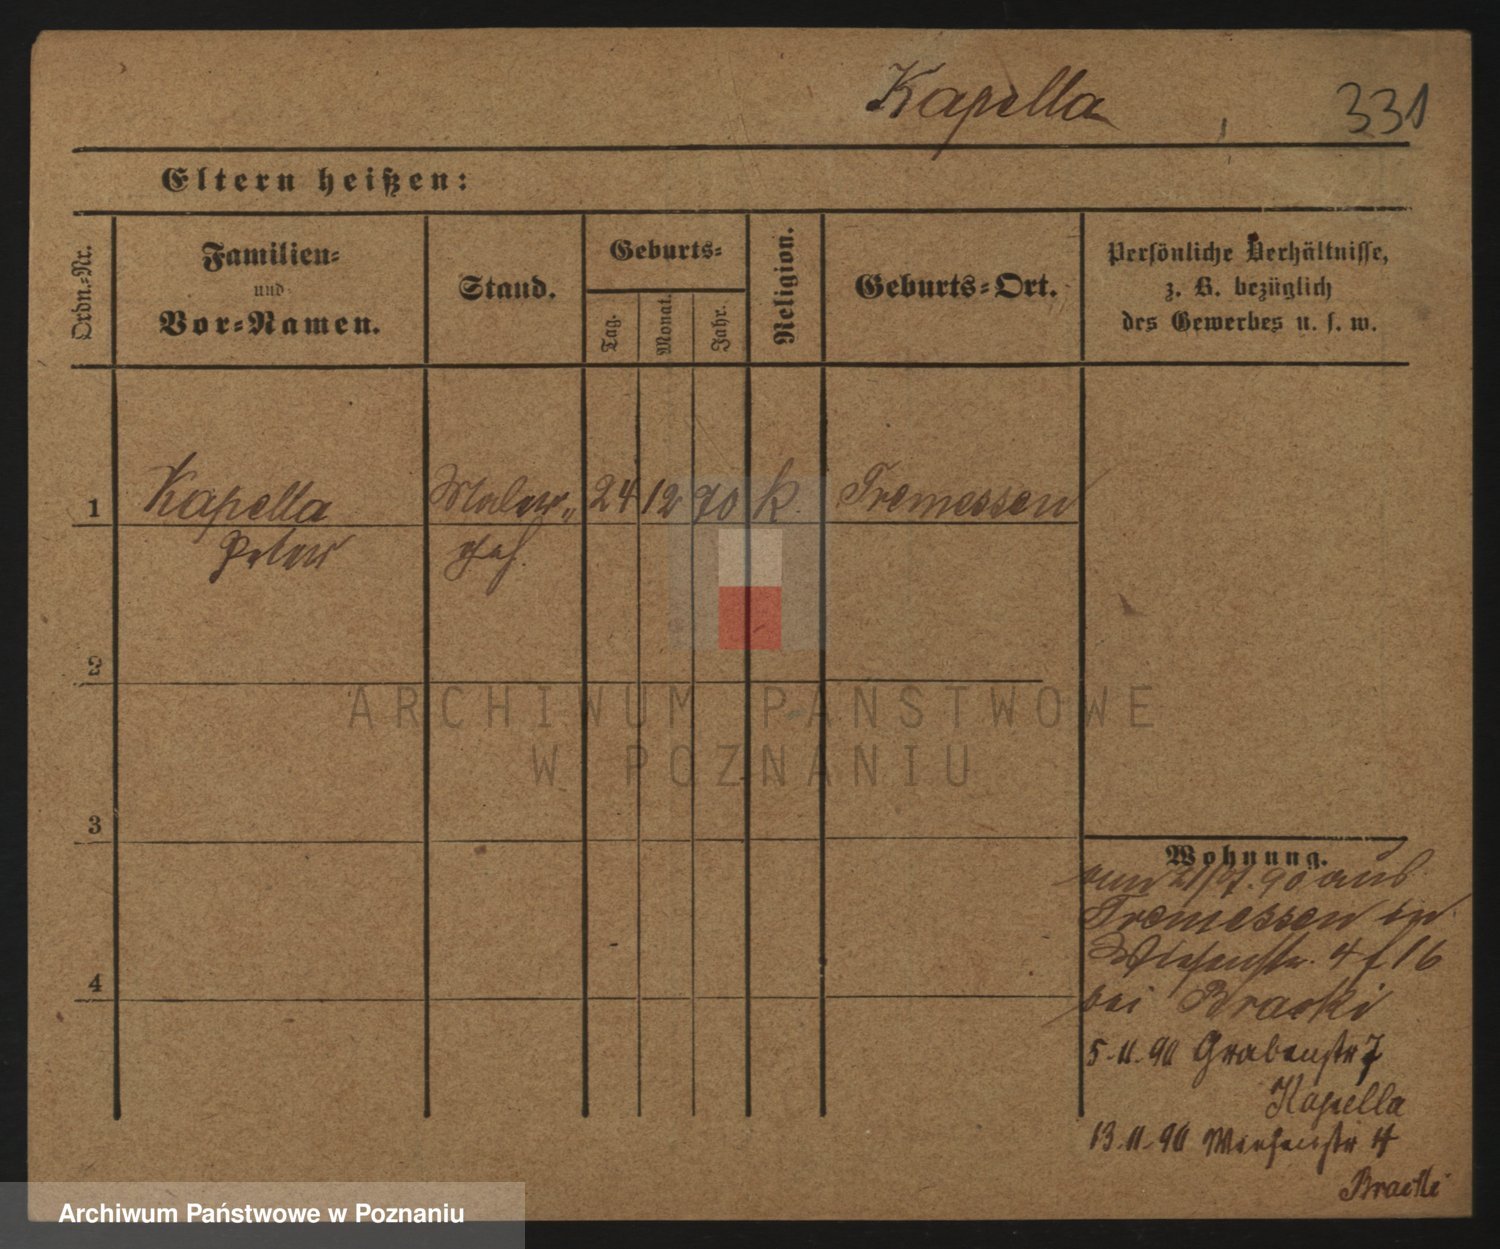 Kapella
331
Eltern heißen:
Ordn.-Nr.
Familien-
und
Vor-Namen.
Stand.
Geburts-
Tag.
Monat.
Jahr.
Religion.
Geburts-Ort.
Persönliche Verhältnisse,
z. B. bezüglich
des Gewerbes u. s. w.
1
Kapella
Peter
Maler-
geh.
24
12
70
k.
Tremessen
2
3
4
Wohnung.
90 aus
Tremessen
Wiesenstr. 4 16
bei Bracki
5.11.90 Grabenstr 7
Kapella
13.11.90 Wiesenstr 4
Bracki
ARCHIWUM PAŃSTWOWE
W POZNANIU
Archiwum Państwowe w Poznaniu